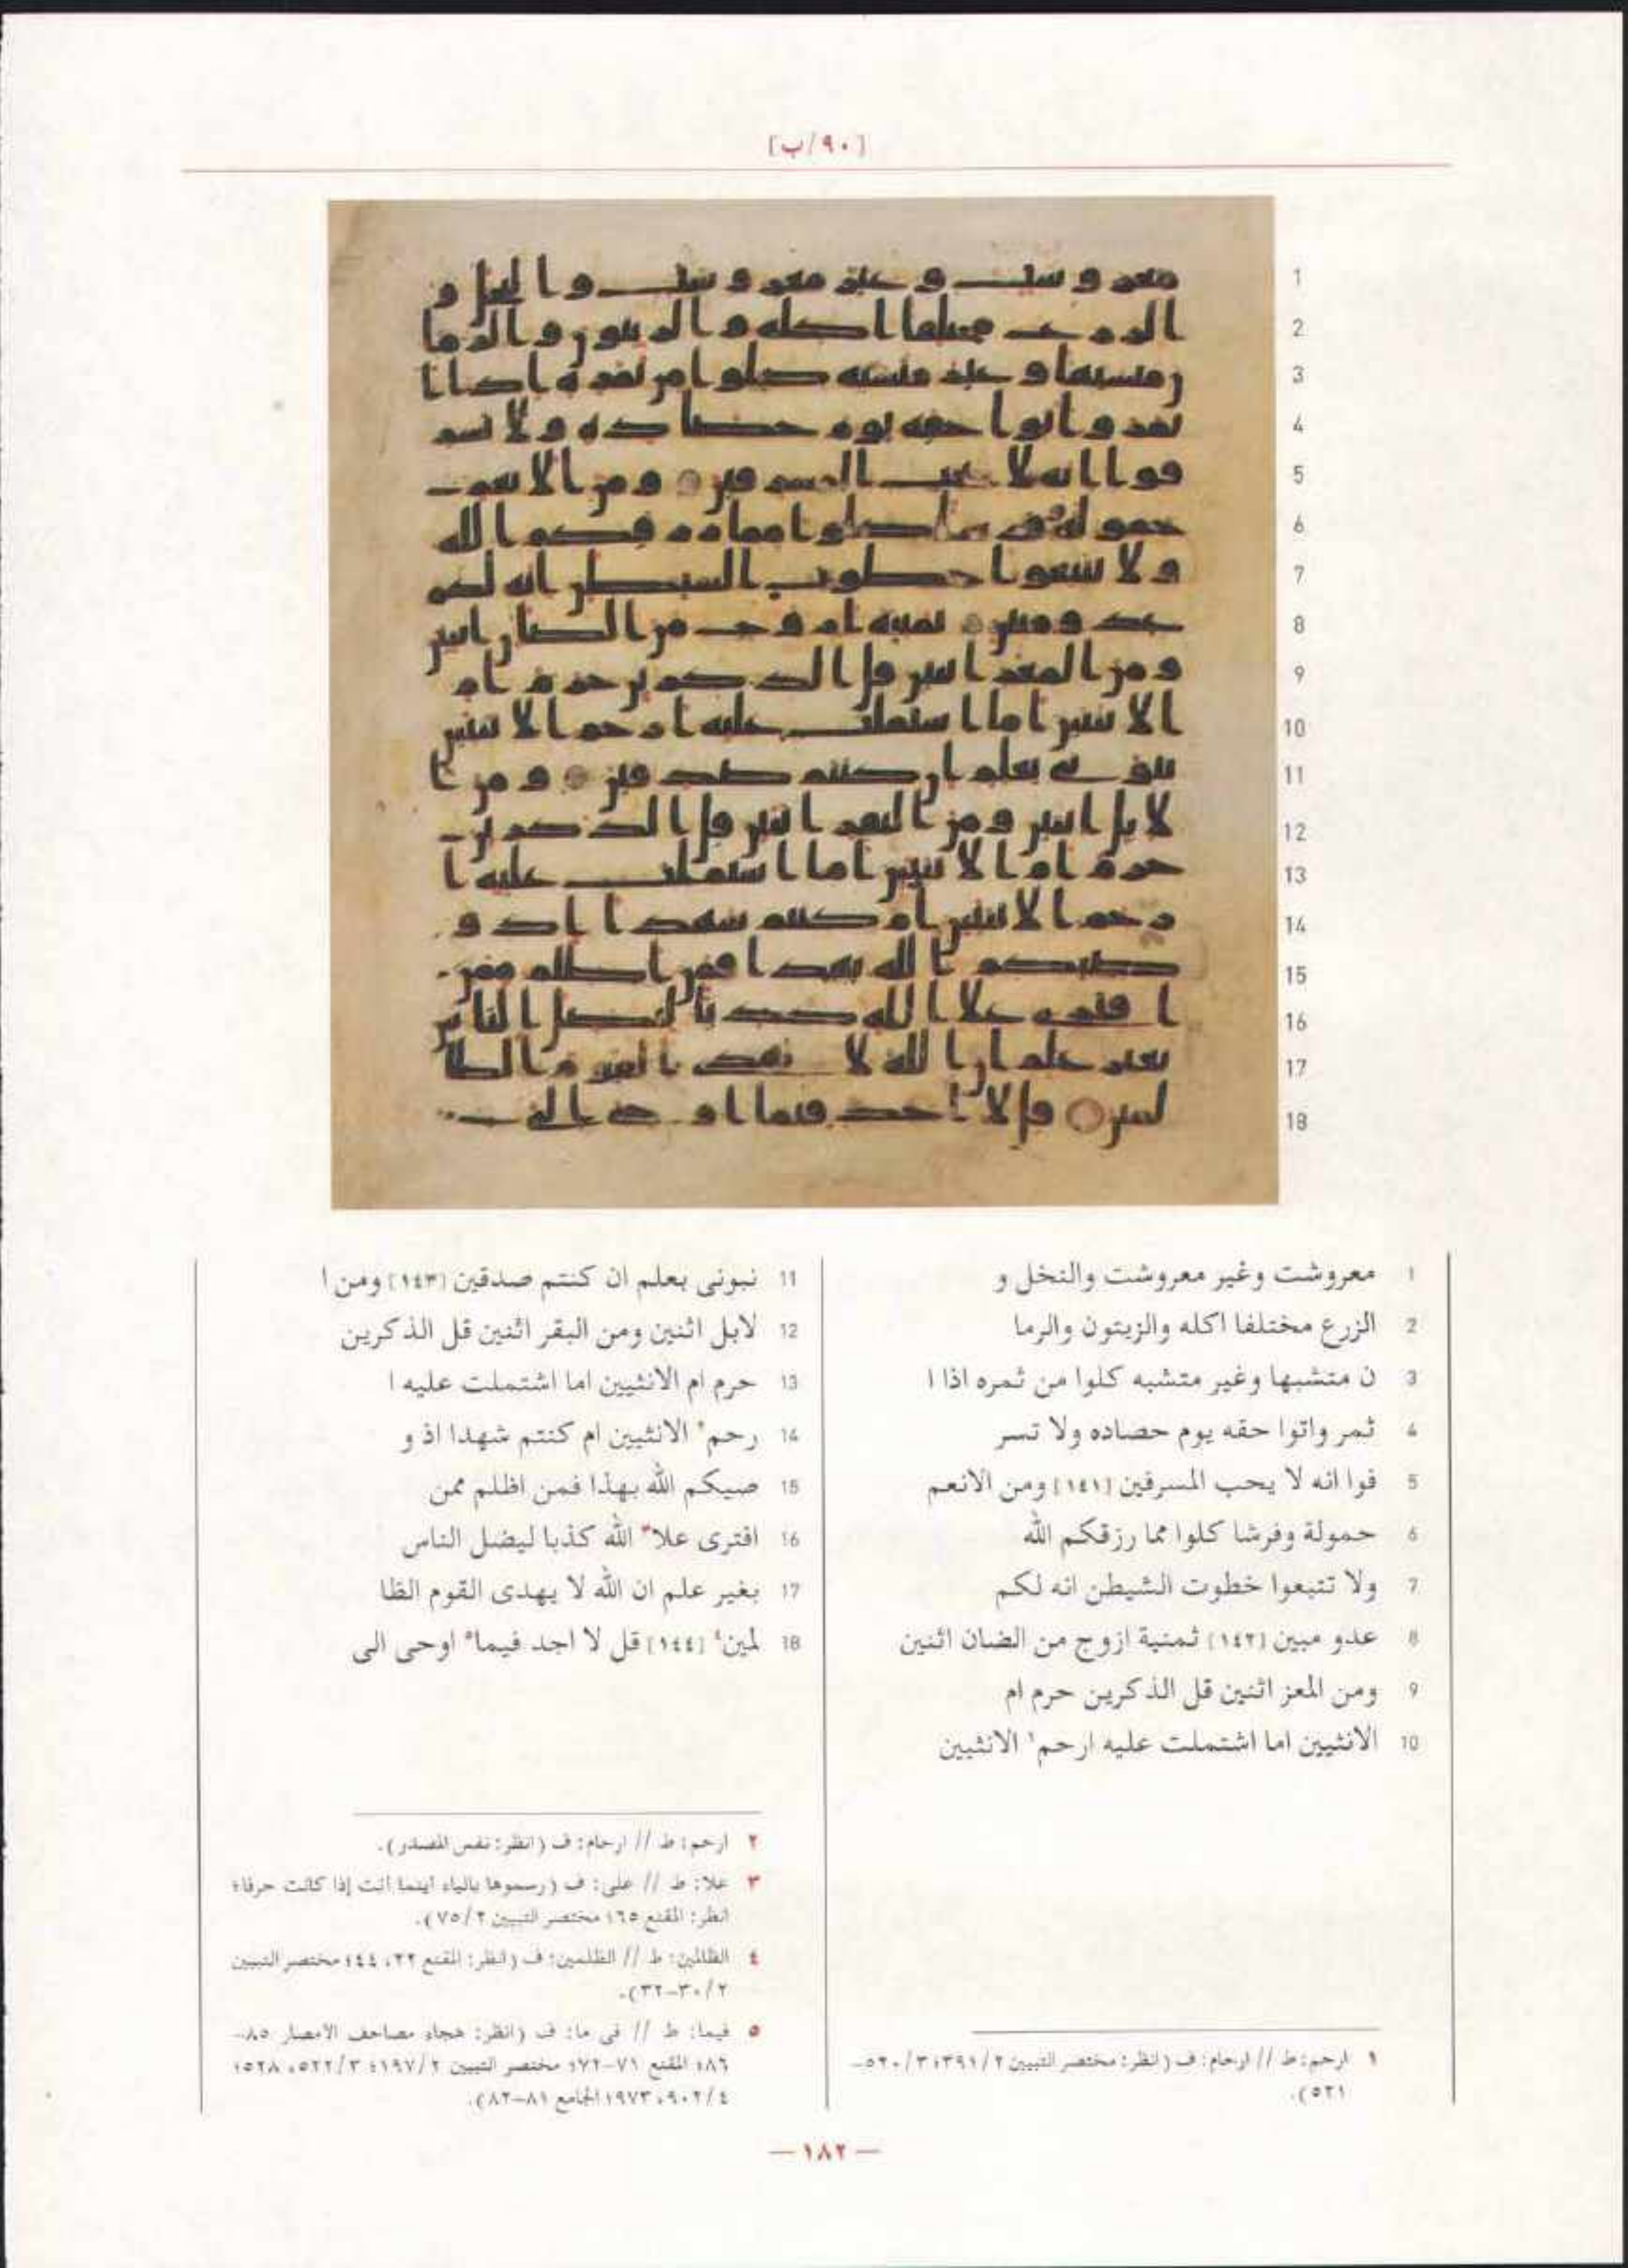 [٩٠/ب]
1 معروشت وغير معروشت والنخل و
2 الزرع مختلفا اكله والزيتون والرما
3 ن متشبها وغير متشبه كلوا من ثمره اذا ا
4 ثمر واتوا حقه يوم حصاده ولا تسر
5 فوا انه لا يحب المسرفين [١٤١] ومن الانعم
6 حمولة وفرشا كلوا مما رزقكم الله
7 ولا تتبعوا خطوت الشيطن انه لكم
8 عدو مبين [١٤٢] ثمنية ازوج من الضان اثنين
9 ومن المعز اثنين قل الذكرين حرم ام
10 الانثيين اما اشتملت عليه ارحم١ الانثيين
١ ارحم: ط // ارحام: ف (انظر: مختصر التبيين ٣٩١/٢؛ ٥٢٠/٣-
٥٢١).
11 نبونى بعلم ان كنتم صدقين [١٤٣] ومن ا
12 لابل اثنين ومن البقر اثنين قل الذكرين
13 حرم ام الانثيين اما اشتملت عليه ا
14 رحم٢ الانثيين ام كنتم شهدا اذ و
15 صيكم الله بهذا فمن اظلم ممن
16 افترى علا٣ الله كذبا ليضل الناس
17 بغير علم ان الله لا يهدى القوم الظا
18 لمين٤ [١٤٤] قل لا اجد فيما٥ اوحى الى
٢ ارحم: ط // ارحام: ف (انظر: نفس المصدر).
٣ علا: ط // على: ف (رسموها بالياء اينما أتت إذا كانت حرفا؛
انظر: المقنع ٦٥؛ مختصر التبيين ٧٥/٢).
٤ الظالمين: ط // الظلمين: ف (انظر: المقنع ٢٢، ٤٤؛ مختصر التبيين
٣٠/٢-٣٢).
٥ فيما: ط // فى ما: ف (انظر: هجاء مصاحف الامصار ٨٥-
٨٦؛ المقنع ٧١-٧٢؛ مختصر التبيين ١٩٧/٢؛ ٥٢٢/٣، ٥٢٨؛
٩٠٢/٤، ٩٧٣؛ الجامع ٨١-٨٢).
— ١٨٢ —